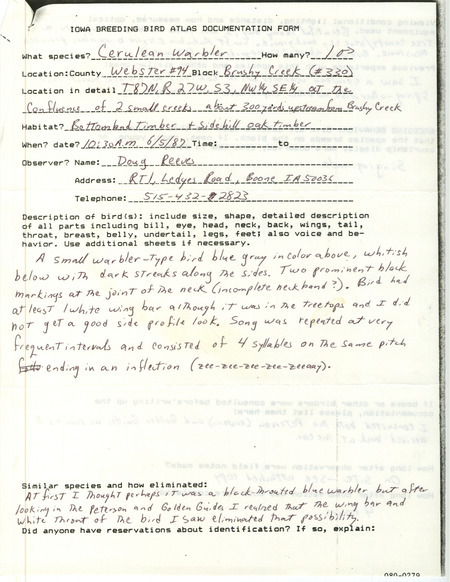 IOWA BREEDING BIRD ATLAS DOCUMENTATION FORM
What species? Cerulean Warbler How many? 1♂
Location: County Webster #94 Block Brushy Creek (#330)
Location in detail T87N, R27W, S3, NW¼, SE¼ at the
Confluense of 2 small creeks about 300 yards upstream from Brushy Creek
Habitat? Bottomland Timber + Sidehill oak timber
When? date? 10:30 A.M. 6/5/87 Time: to
Observer? Name: Doug Reeves
Address: RT1, Ledges Road, Boone IA 50036
Telephone: 515-432-2823
Description of bird(s): include size, shape, detailed description
of all parts including bill, eye, head, neck, back, wings, tail,
throat, breast, belly, undertail, legs, feet; also voice and be-
havior. Use additional sheets if necessary.
A small warbler-Type bird blue gray in color above, whitish
below with dark streaks along the sides. Two prominent black
markings at the joint of the neck (incomplete neck band?). Bird had
at least 1 white wing bar although it was in the treetops and I did
not get a good side profile look. Song was repeated at very
frequent intervals and consisted of 4 syllables on the same pitch
ending in an inflection (zee-zee-zee-zee-zeeaay).
Similar species and how eliminated:
AT first I thought perhaps it was a black-throated blue warbler but after
looking in the Peterson and Golden Guides I realized that the wing bar and
White Throat of the bird I saw eliminated that possibility.
Did anyone have reservations about identification? If so, explain: